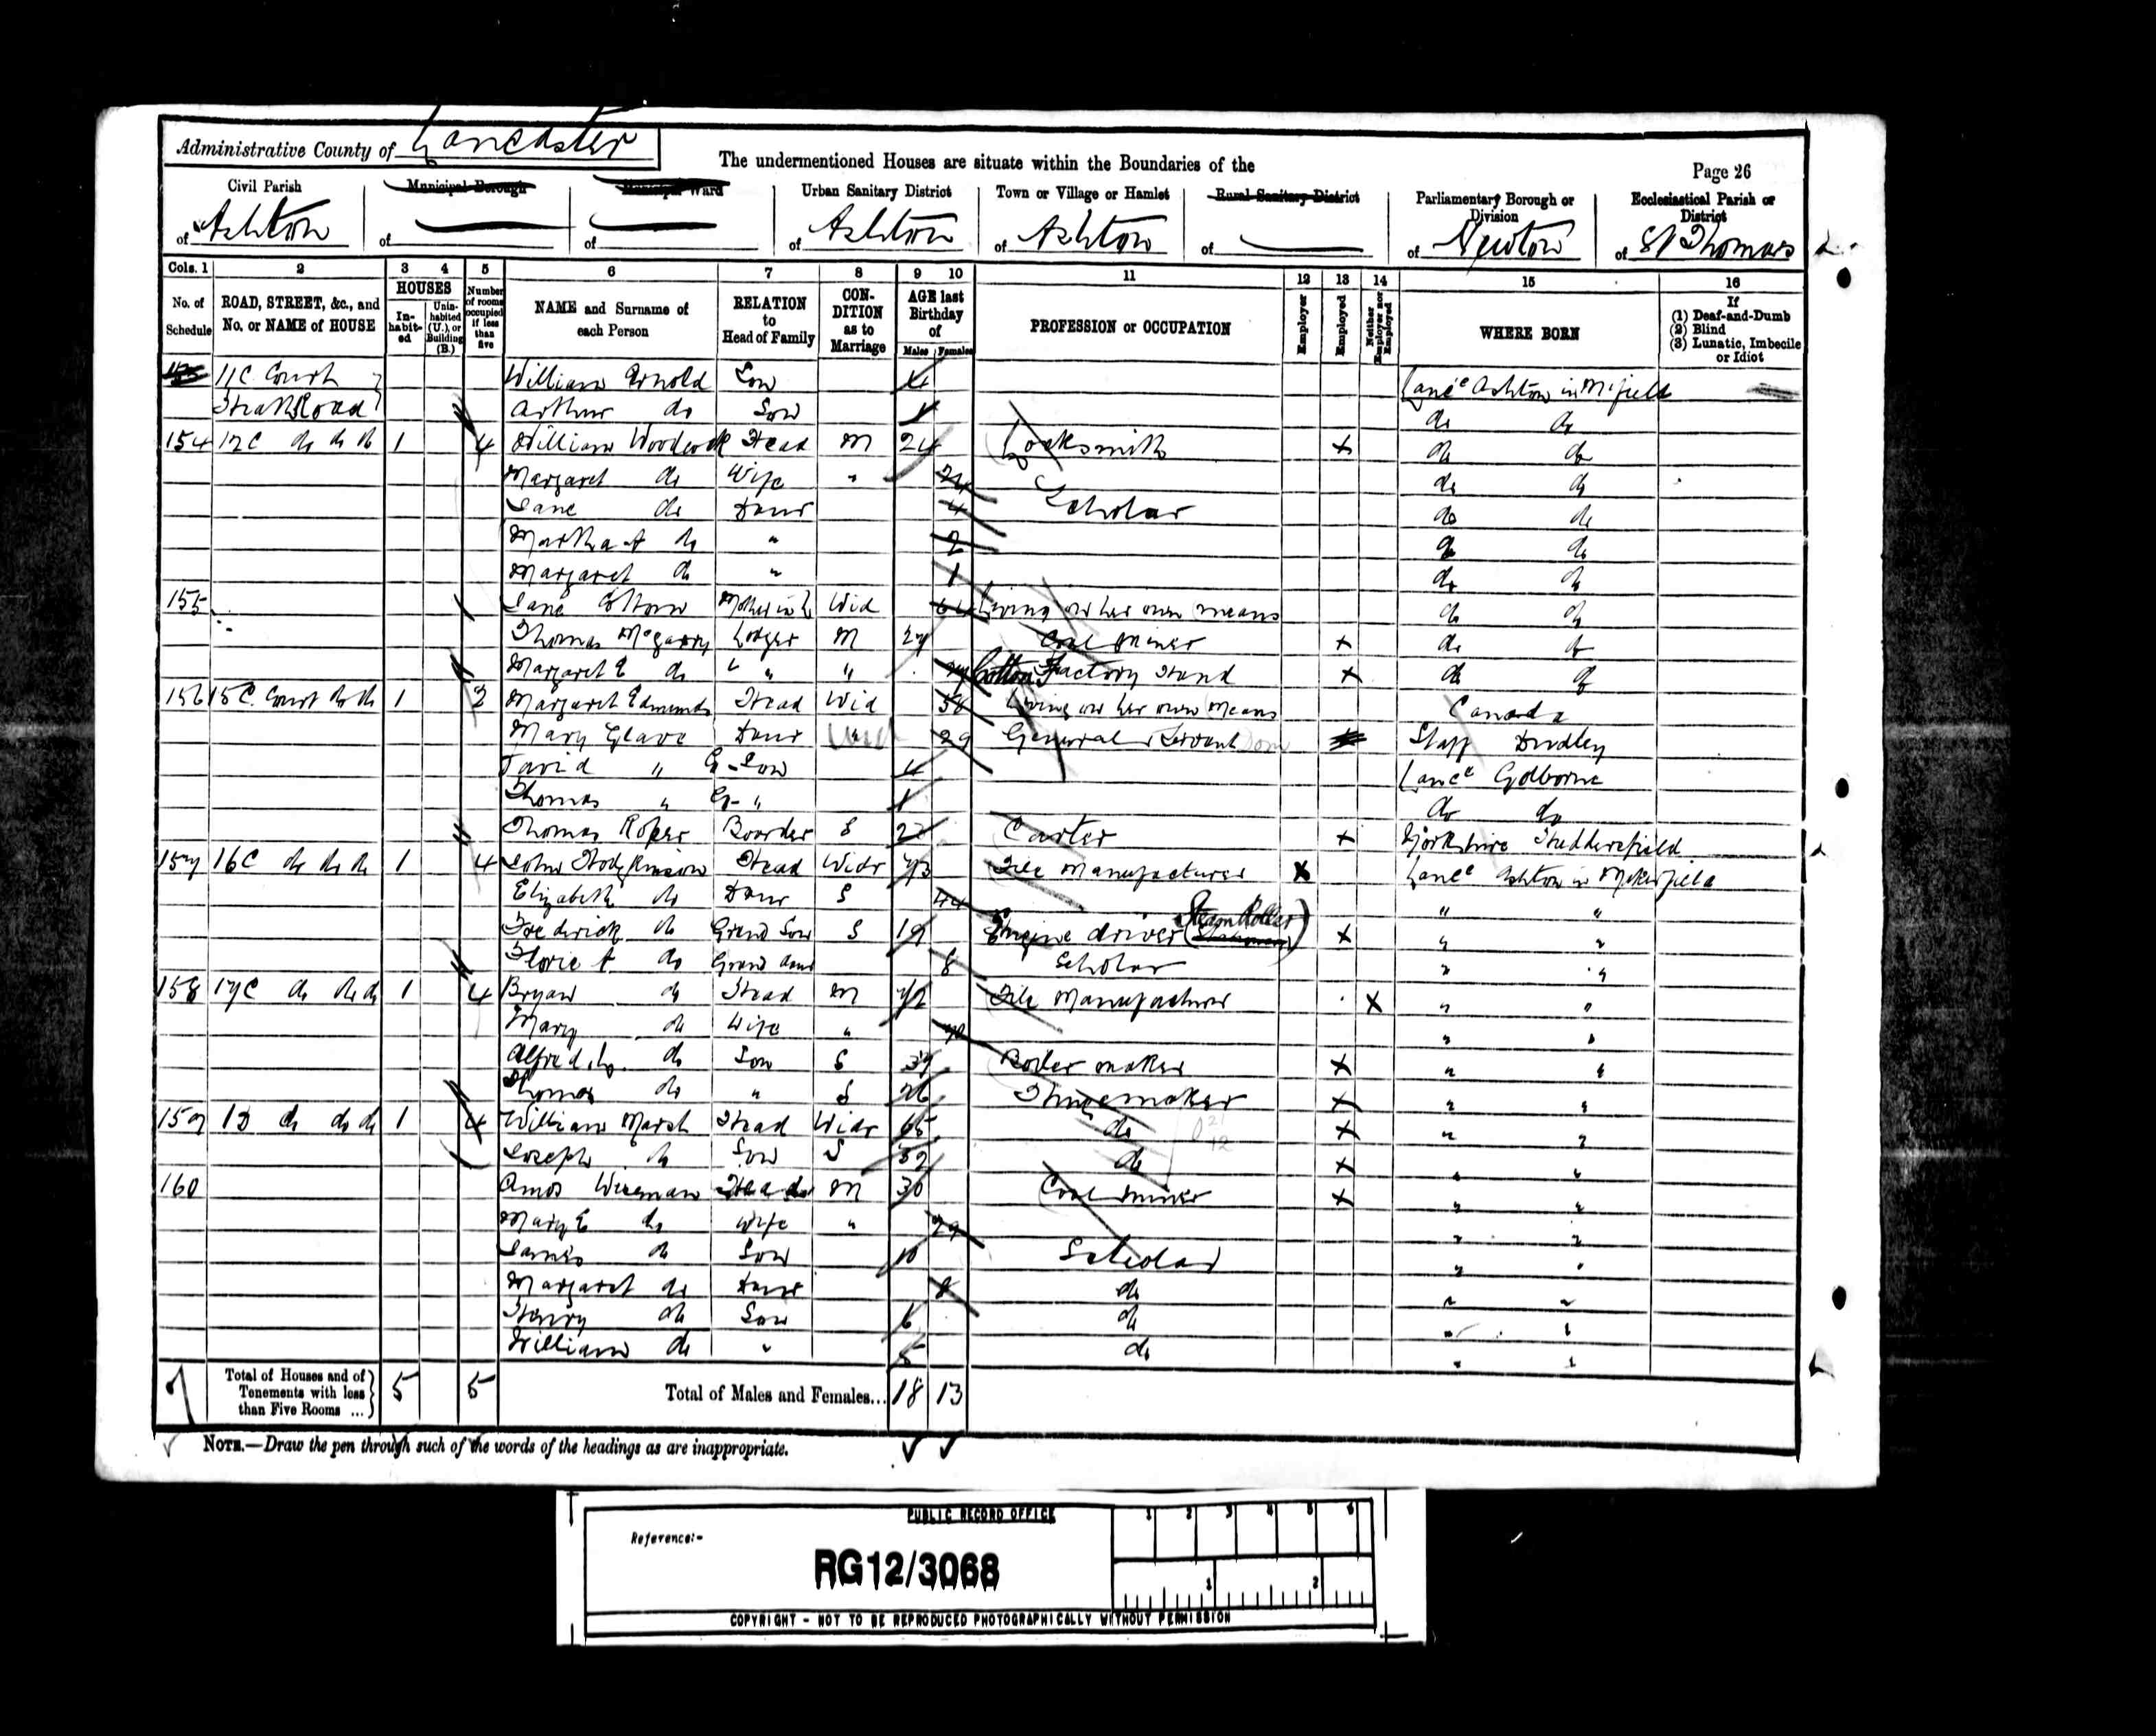 Administrative County of Lancaster
The undermentioned Houses are situate within the Boundaries of the
Page 26
Civil Parish of Ashton
Municipal Borough of
Municipal Ward of
Urban Sanitary District of Ashton
Town or Village or Hamlet of Ashton
Rural Sanitary District of
Parliamentary Borough or Division of Newton
Ecclesiastical Parish or District of St Thomas
Cols. 1 2 3 4 5 6 7 8 9 10 11 12 13 14 15 16
No. of Schedule
ROAD, STREET, &c., and No. or NAME of HOUSE
HOUSES
Inhabited
Uninhabited (U.), or Building (B.)
Number of rooms occupied if less than five
NAME and Surname of each Person
RELATION to Head of Family
CONDITION as to Marriage
AGE last Birthday of
Males Females
PROFESSION or OCCUPATION
Employer
Employed
Neither Employer nor Employed
WHERE BORN
If
(1) Deaf-and-Dumb
(2) Blind
(3) Lunatic, Imbecile or Idiot
11C Court William Arnold Son 4 Lance Ashton in M'field
Road Arthur do Son 1 do do
154 12C do do do 1 4 William Woodcock Head M 24 Locksmith X do do
Margaret do Wife " 24 do do
Jane do Daur 4 Scholar do do
Martha A do " 2 do do
Margaret do " 1 do do
155 Jane Mother in L Wid 64 Living on her own means do do
Thomas McGarry Lodger M 27 Coal Miner X do do
Margaret E do " " " Cotton Factory Hand X do do
156 15C Court do do 1 3 Margaret Edmunds Head Wid 58 Living on her own Means Canada
Mary Glave Daur " 29 General Servant Dom Staff Dudley
David " G-Son 4 Lance Golborne
Thomas " G- " 1 do do
Thomas Roper Boarder S 22 Carter X Yorkshire Huddersfield
157 16C do do do 1 4 John Hodgkinson Head Widr 73 File Manufacturer X Lance Ashton in Makerfield
Elizabeth do Daur S 44 " "
Frederick do Grand Son S 19 Engine driver (Steam Roller) X " "
Florie A do Grand daur 8 Scholar " "
158 17C do do do 1 4 Bryan do Head M 72 File Manufacturer X " "
Mary do Wife " 70 " "
Alfred do Son S 37 Boiler maker X " "
Thomas do " S 26 Hingemaker X " "
159 18 do do do 1 4 William Marsh Head Widr 65 do X " "
Joseph do Son S 32 do X " "
160 Amos Wiseman Head M 30 Coal Miner X " "
Mary E do Wife " 29 " "
James do Son 10 Scholar " "
Margaret do Daur 8 do " "
Henry do Son 6 do " "
William do " 5 do " "
Total of Houses and of Tenements with less than Five Rooms ... 5 5 Total of Males and Females... 18 13
NOTE.—Draw the pen through such of the words of the headings as are inappropriate.
PUBLIC RECORD OFFICE
1 2 3 4 5 6
Reference:-
RG12/3068
1 2
COPYRIGHT - NOT TO BE REPRODUCED PHOTOGRAPHICALLY WITHOUT PERMISSION